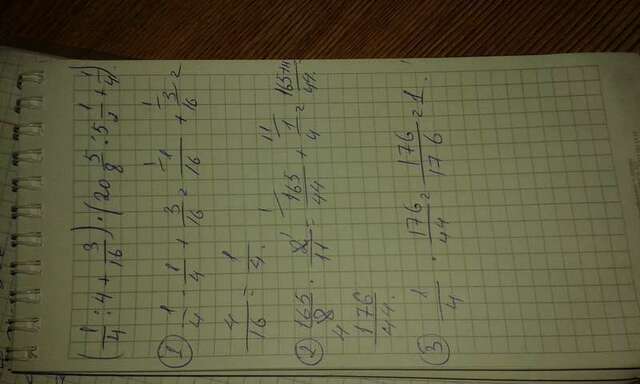 (1/4 : 4 + 3/16) · (20 5/8 : 5 1/2 + 1/4)
① 1/4 · 1/4 + 3/16 = 1/16 + 3/16 =
4/16 = 1/4.
② 165/8 · 2/11 = 165/44 + 1/4 = 165+11/44
176/44.
③ 1/4 · 176/44 = 176/176 = 1.